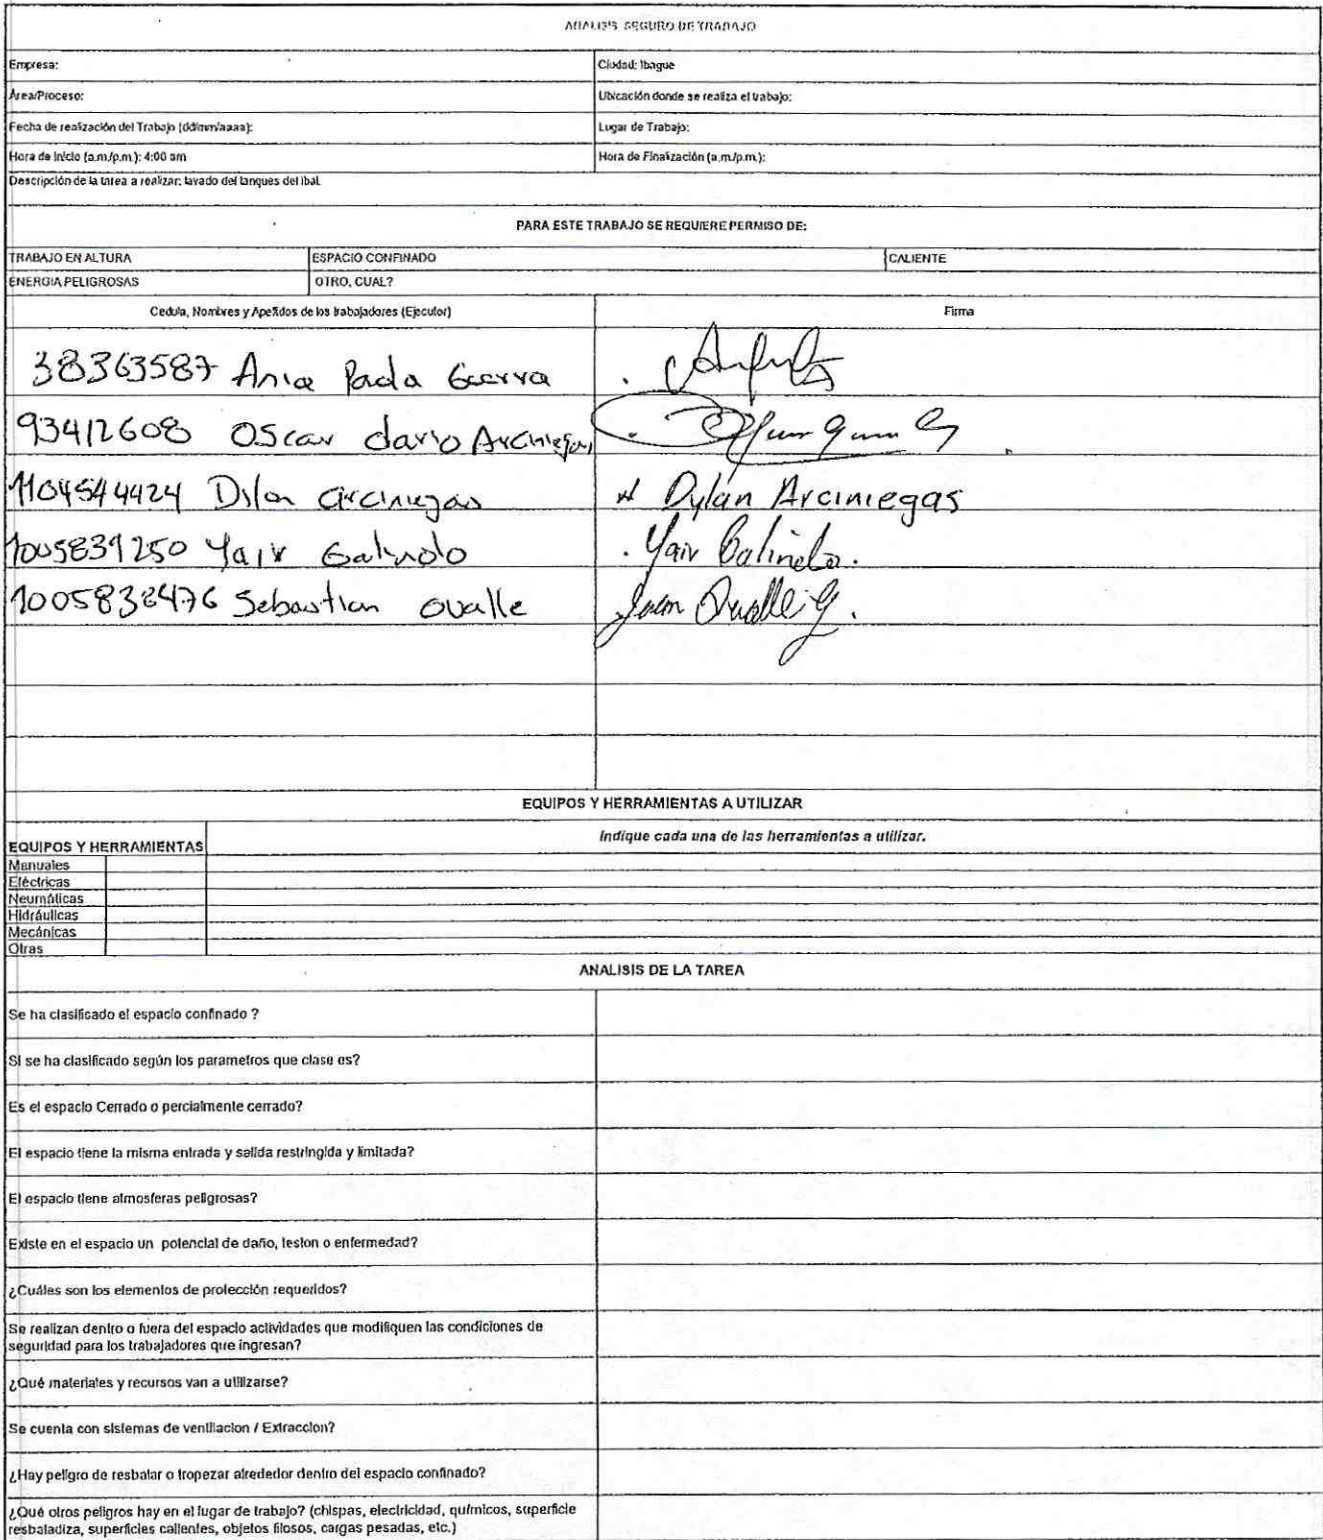 ANALISIS SEGURO DE TRABAJO
Empresa:
Ciudad: Ibague
Área/Proceso:
Ubicación donde se realiza el trabajo:
Fecha de realización del Trabajo (dd/mm/aaaa):
Lugar de Trabajo:
Hora de Inicio (a.m./p.m.): 4:00 am
Hora de Finalización (a.m./p.m.):
Descripción de la tarea a realizar: lavado del tanques del ibal.
PARA ESTE TRABAJO SE REQUIERE PERMISO DE:
TRABAJO EN ALTURA
ESPACIO CONFINADO
CALIENTE
ENERGIA PELIGROSAS
OTRO, CUAL?
Cedula, Nombres y Apellidos de los trabajadores (Ejecutor)
Firma
38363587 Ania Paola Guerra
93412608 Oscar dario Arciniegas
1104544424 Dilan arciniegas
Dylan Arciniegas
1005839250 Yair Galindo
Yair Galindo.
1005838476 Sebastian Ovalle
Juan Ovalle g.
EQUIPOS Y HERRAMIENTAS A UTILIZAR
EQUIPOS Y HERRAMIENTAS
Indique cada una de las herramientas a utilizar.
Manuales
Eléctricas
Neumáticas
Hidráulicas
Mecánicas
Otras
ANALISIS DE LA TAREA
Se ha clasificado el espacio confinado ?
Si se ha clasificado según los parametros que clase es?
Es el espacio Cerrado o percialmente cerrado?
El espacio tiene la misma entrada y salida restringida y limitada?
El espacio tiene atmosferas peligrosas?
Existe en el espacio un potencial de daño, lesion o enfermedad?
¿Cuáles son los elementos de protección requeridos?
Se realizan dentro o fuera del espacio actividades que modifiquen las condiciones de
seguridad para los trabajadores que ingresan?
¿Qué materiales y recursos van a utilizarse?
Se cuenta con sistemas de ventilacion / Extraccion?
¿Hay peligro de resbalar o tropezar alrededor dentro del espacio confinado?
¿Qué otros peligros hay en el lugar de trabajo? (chispas, electricidad, químicos, superficie
resbaladiza, superficies calientes, objetos filosos, cargas pesadas, etc.)